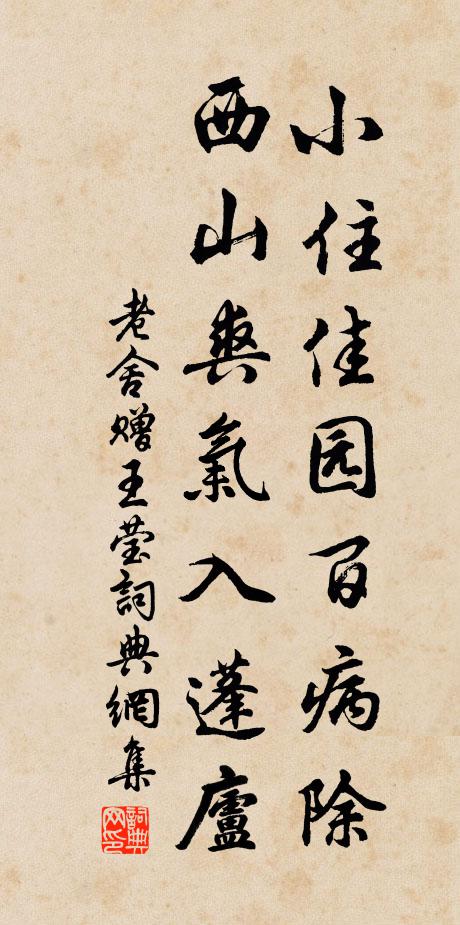 小住佳园百病除
西山爽氣入蓬廬
老舍赠王莹詞典網集
詞典网印